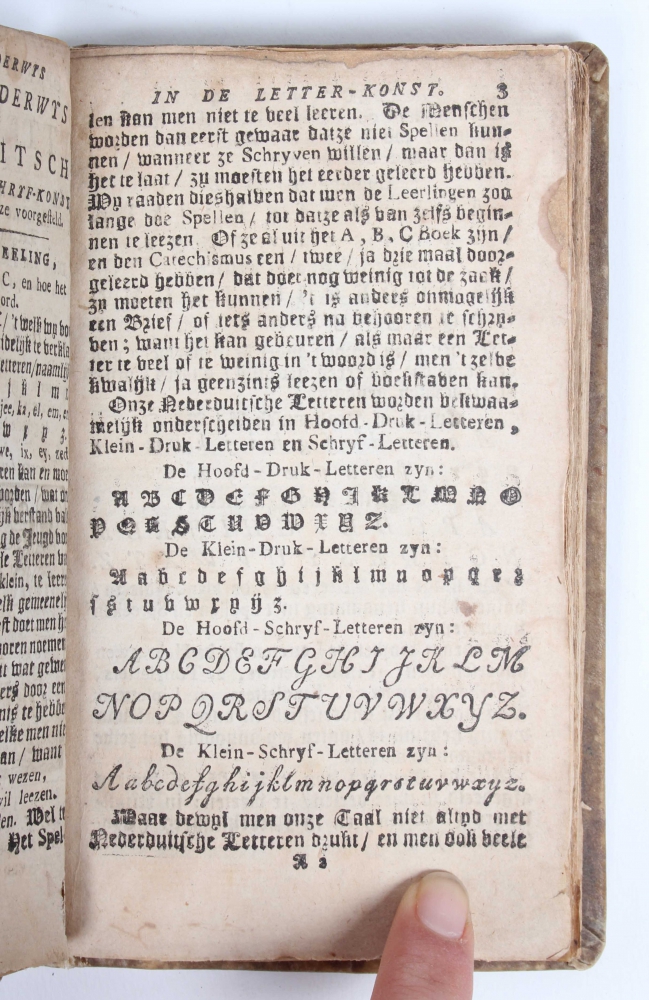 DERWYS
DERWYS
ITSCH
HRYF-KONST
ze voorgesteld.
EELING,
C, en hoe het
oord.
wezen,
vil leezen.
Het Spel-
IN DE LETTER-KONST. 3
len kan men niet te veel leeren. De Menschen
worden dan eerst gewaar datze niet Spellen kun-
nen / wanneer ze Schryven willen / maar dan is
het te laat / zy moesten het eerder geleerd hebben.
Wy raaden dieshalven dat men de Leerlingen zoo
lange doe Spellen / tot datze als van zelfs begin-
nen te leezen. Of ze al uit het A, B, C Boek zyn /
en den Catechismus een / twee / ja drie maal door-
geleerd hebben / dat doet nog weinig tot de zaak /
zy moeten het kunnen / 't is anders onmogelyk
een Brief / of iets anders na behooren te schry-
ven; want het kan gebeuren / als maar een Let-
ter te veel of te weinig in 't woord is / men 't zelve
kwalyk / ja geenzints leezen of boekstaven kan.
Onze Nederduitsche Letteren worden bekwaa-
melyk onderscheiden in Hoofd-Druk-Letteren,
Klein-Druk-Letteren en Schryf-Letteren.
De Hoofd-Druk-Letteren zyn:
A B C D E F G H I K L M N O
P Q R S T U V W X Y Z.
De Klein-Druk-Letteren zyn:
A a b c d e f g h i j k l m n o p q r ꝛ
ſ s t u v w x y ij z.
De Hoofd-Schryf-Letteren zyn:
A B C D E F G H I J K L M
N O P Q R S T U V W X Y Z.
De Klein-Schryf-Letteren zyn:
A a b c d e f g h i j k l m n o p q r s t u v w x y z.
Maar dewyl men onze Taal niet altyd met
Nederduitsche Letteren drukt / en men ook veele
A 2